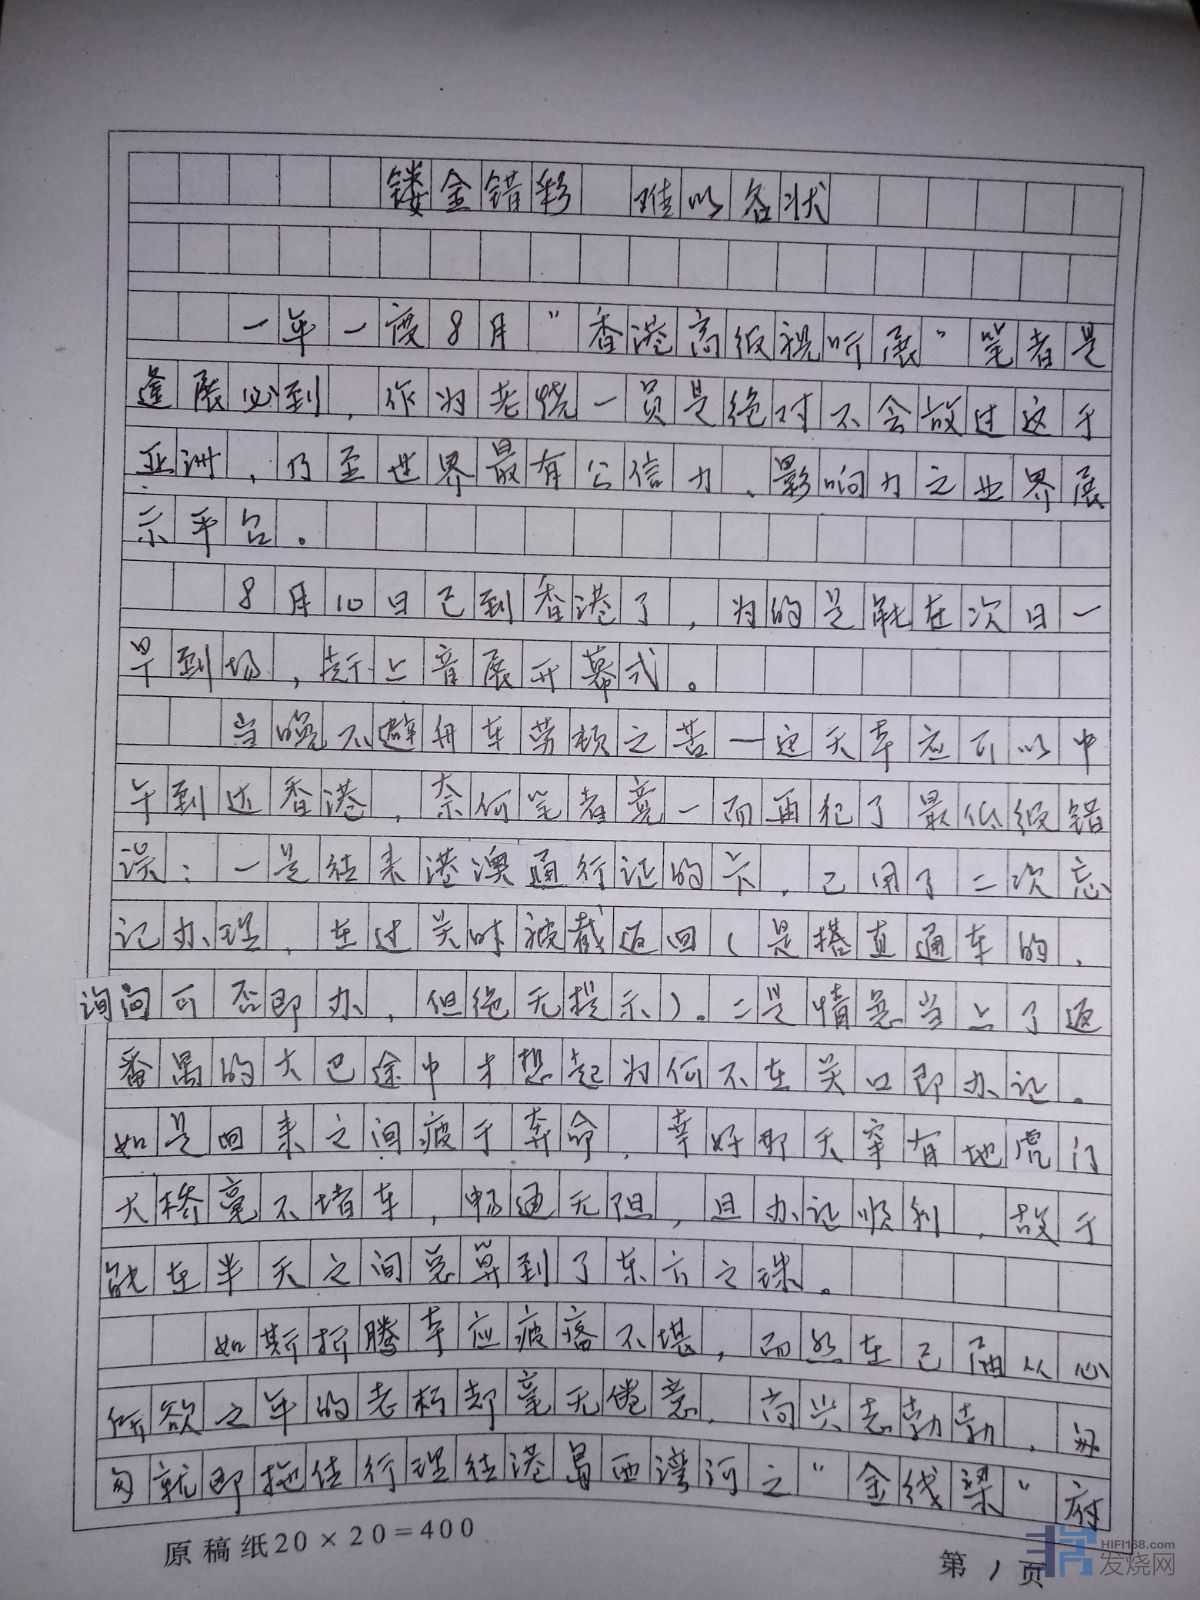 镂金错彩 难以名状
一年一度8月"香港高级视听展"笔者是
逢展必到，作为老烧一员是绝对不会放过这于
亚洲，乃至世界最有公信力、影响力之业界展
示平台。
8月10日已到香港了，为的是能在次日一
早到场，赶上音展开幕式。
当晚不避舟车劳顿之苦一这天本应可以中
午到达香港，奈何笔者竟一而再犯了最低级错
误：一是往来港澳通行证的卡，已用了二次忘
记办理，在过关时被截返回（是搭直通车的，
询问可否即办，但绝无提示）。二是情急当上了返
番禺的大巴途中才想起为何不在关口即办证。
如是回来之间疲于奔命，幸好那天罕有地虎门
大桥毫不堵车，畅通无阻，且办证顺利，故于
能在半天之间总算到了东方之珠。
如斯折腾本应疲惫不堪，而然在已随从心
所欲之年的老朽却毫无倦意，高兴志勃勃，匆
匆就即拖住行理往港岛西湾河之"金线梁"府
原稿纸20×20=400
第1页
HIFI168.com
发烧网